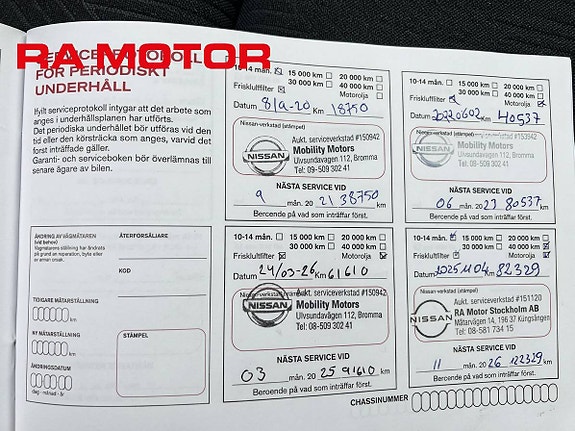 RA MOTOR
SERVICEPROTOKOLL
FÖR PERIODISKT
UNDERHÅLL
Ifyllt serviceprotokoll intygar att det arbete som
anges i underhållsplanen har utförts.
Det periodiska underhållet bör utföras vid den
tid eller den körsträcka som anges, varvid det
först inträffade gäller.
Garanti- och serviceboken bör överlämnas till
senare ägare av bilen.
ÄNDRING AV VÄGMÄTAREN
(vid behov)
Vägmätarens ställning har ändrats
på grund av reparation, byte eller
av annan orsak.
TIDIGARE MÄTARSTÄLLNING
km
NY MÄTARSTÄLLNING
km
ÄNDRINGSDATUM
dag - månad - år
ÅTERFÖRSÄLJARE
KOD
STÄMPEL
10-14 mån. 15 000 km 20 000 km
30 000 km 40 000 km
Friskluftfilter Motorolja
Datum 8/9-20 Km 18750
Nissan-verkstad (stämpel)
Aukt. serviceverkstad #150942
NISSAN Mobility Motors
Ulvsundavägen 112, Bromma
Tel: 08-509 302 41
NÄSTA SERVICE VID
9 mån. 20 21 38750 km
Beroende på vad som inträffar först.
10-14 mån. 15 000 km 20 000 km
30 000 km 40 000 km
Friskluftfilter Motorolja
Datum 20220602 Km 40537
Nissan-verkstad (stämpel)
Aukt. serviceverkstad #150942
NISSAN Mobility Motors
Ulvsundavägen 112, Bromma
Tel: 08-509 302 41
NÄSTA SERVICE VID
06 mån. 20 23 80537 km
Beroende på vad som inträffar först.
10-14 mån. 15 000 km 20 000 km
30 000 km 40 000 km
Friskluftfilter Motorolja
Datum 24/03-26 Km 61610
Nissan-verkstad (stämpel)
Aukt. serviceverkstad #150942
NISSAN Mobility Motors
Ulvsundavägen 112, Bromma
Tel: 08-509 302 41
NÄSTA SERVICE VID
03 mån. 20 25 91610 km
Beroende på vad som inträffar först.
10-14 mån. 15 000 km 20 000 km
30 000 km 40 000 km
Friskluftfilter Motorolja
Datum 20251104 Km 82329
Nissan-verkstad (stämpel)
Aukt. serviceverkstad #151120
NISSAN RA Motor Stockholm AB
Mätarvägen 14, 196 37 Kungsängen
Tel: 08-581 734 15
NÄSTA SERVICE VID
11 mån. 20 26 122329 km
Beroende på vad som inträffar först.
CHASSINUMMER